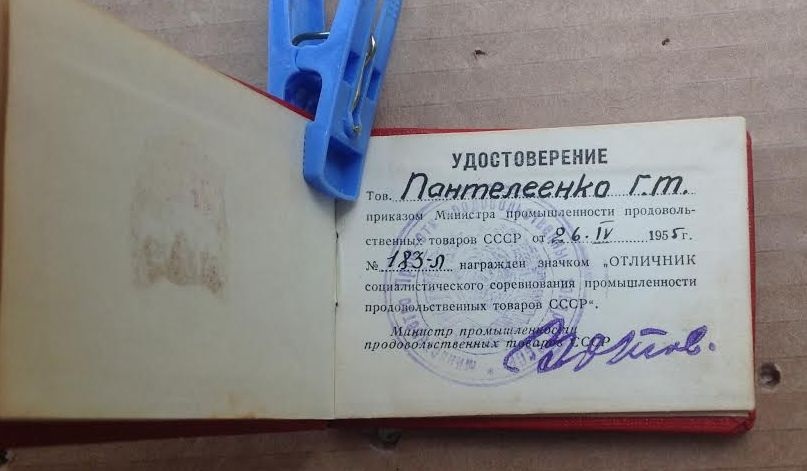 УДОСТОВЕРЕНИЕ
Тов. Пантелеенко Г.Т.
приказом Министра промышленности продоволь-
ственных товаров СССР от 26.IV 1955г.
№ 183-л награжден значком „ОТЛИЧНИК
социалистического соревнования промышленности
продовольственных товаров СССР“.
Министр промышленности
продовольственных товаров СССР